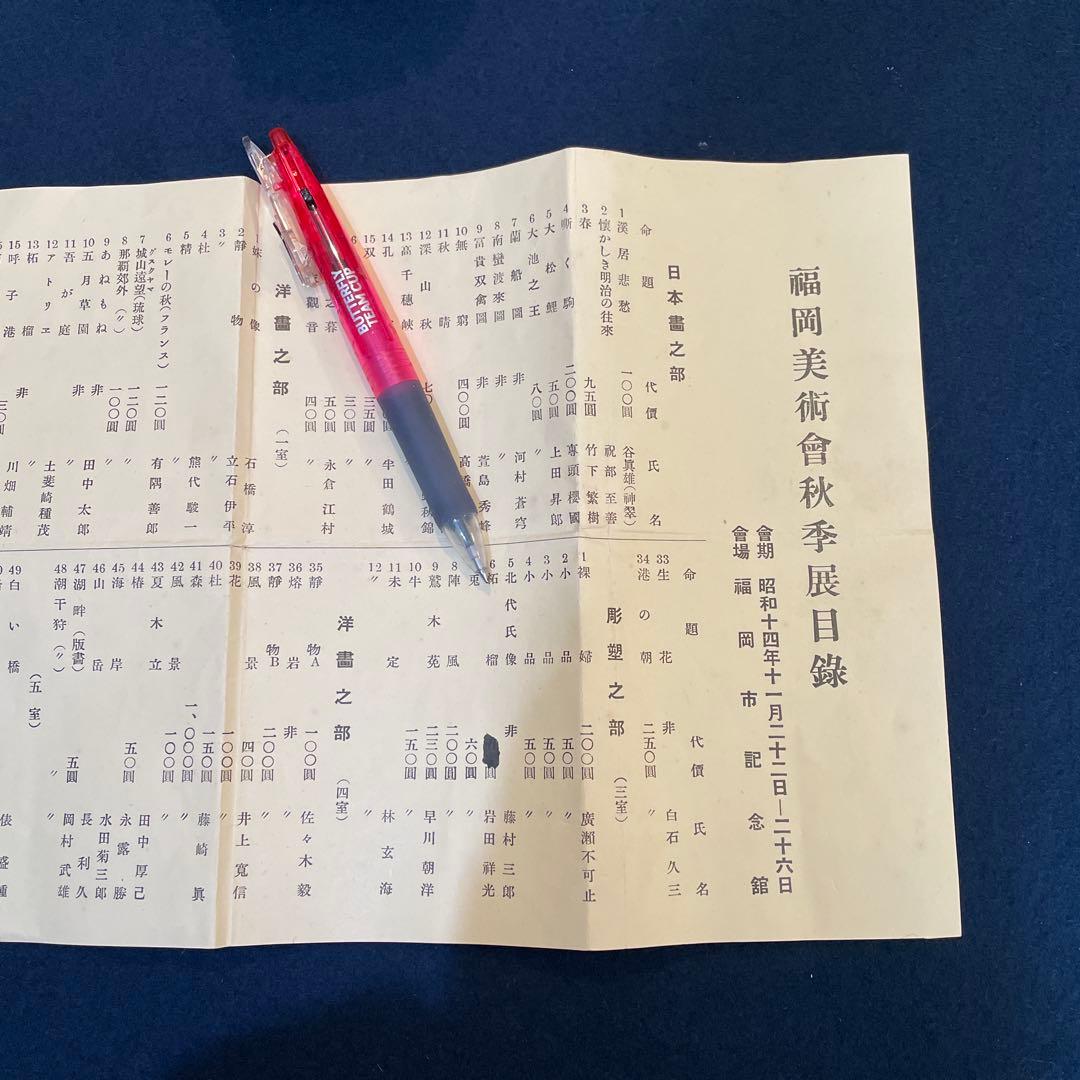 福岡美術會秋季展目錄
會期 昭和十四年十一月二十二日—二十六日
會場 福岡市記念舘
日本畫之部
命題 代價 氏名
1 溪居悲愁 一〇〇圓 谷眞雄(神翠)
2 懷かしき明治の往來 九五圓 祝部至善
3 春 竹下繁樹
4 嘶く駒 二〇〇圓 專頭櫻國
5 大松鯉 五〇圓 上田昇郎
6 大池之王 八〇圓 〃
7 蘭船圖 非 河村蒼穹
8 南蠻渡來圖 非 〃
9 富貴双禽圖 非 萱島秀峰
10 無窮 四〇〇圓 高橋
11 秋晴
12 深山秋 秋錦
13 高千穗峽 〃
14 孔 牟田鶴城
15 双 三五 〃
三〇圓 〃
之暮 五〇圓 永倉江村
觀音 四〇圓 〃
洋畫之部 (一室)
1 妹の像 石橋淳
2 靜物 立石伊平
3 〃 〃
4 杜 熊代駿一
5 精 〃
6 モレーの秋(フランス) 一二〇圓 有隅善郎
7 城山遠望(琉球) 一二〇圓 〃
グスクヤマ
8 那覇郊外(〃) 一〇〇圓 〃
9 あねもね 非 〃
10 五月草園 非 田中太郎
11 吾が庭 〃
12 アトリヱ 土斐崎種茂
13 柘榴 非 〃
15 呼子港 三〇圓 川畑輔靖
命題 代價 氏名
33 生花 非 白石久三
34 港の朝 二五〇圓 〃
彫塑之部 (三室)
1 裸婦 二〇〇圓 廣瀨不可止
2 小品 五〇圓 〃
3 小品 五〇圓 〃
4 小品 五〇圓 〃
5 北代氏像 非 藤村三郎
6 柘榴 圓 岩田祥光
兎 六〇圓 〃
8 陣風 二〇〇圓 〃
9 鷲 木苑 二三〇圓 早川朝洋
10 牛 一五〇圓 〃
11 未定 林玄海
12 〃 〃
洋畫之部 (四室)
35 靜物A 一〇〇圓 佐々木毅
36 熔岩 非 〃
37 靜物B 二〇〇圓 〃
38 風景 四〇圓 井上寬信
39 花 一〇〇圓 〃
40 杜 一五〇圓 〃
41 森 一、〇〇〇圓 藤崎眞
42 風景 一〇〇圓 〃
43 夏木立 田中厚己
44 椿 五〇圓 永露勝
45 海岸 水田菊三郎
46 山岳 長利久
47 湖畔(版畫) 五圓 岡村武雄
48 潮干狩(〃) 〃
(五室)
49 白い橋 俵盛重